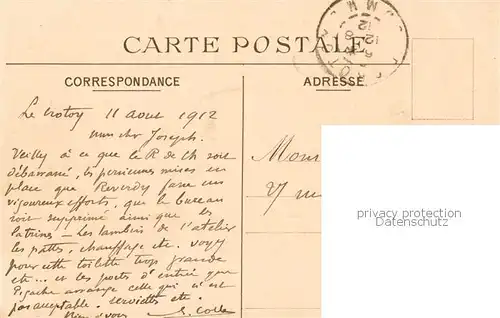 CARTE POSTALE
CORRESPONDANCE
ADRESSE
Le Crotoy 11 aout 1912
mon cher Joseph.
Veillez à ce que le R de Ch soit
débarrassé, les persiennes mises en
place que Reverdy fasse ses
vigoureux efforts, que le bureau
soit supprimé ainsi que les
latrines – Les lambris de l'atelier
les pattes, chauffage etc. voyez
pour cette toilette trop grande
etc... et les portes d'entrée que
arrange celle qui n'est
pas acceptable. serviette etc.
Bien à vous
privacy protection
Datenschutz